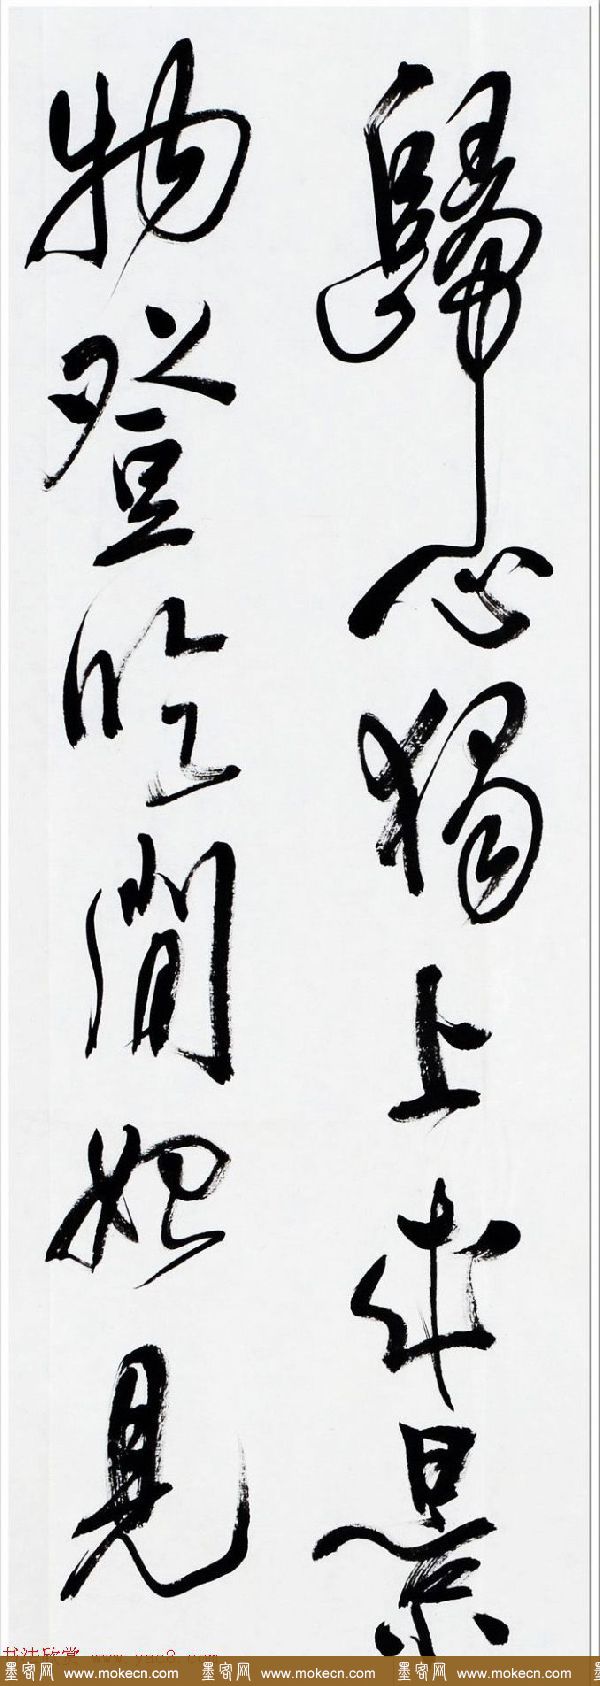 歸心獨上景
物登臨閒始見
墨客网 www.mokecn.com 墨客网 www.mokecn.com 墨客网 www.mokecn.com